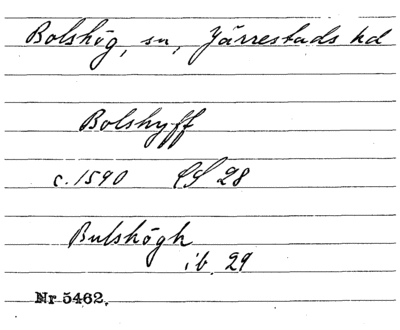 Bolshög, sn, Järrestads hd
Bolshyff
c. 1590 LS 28
Bulshögh
ib. 29
Nr 5462.